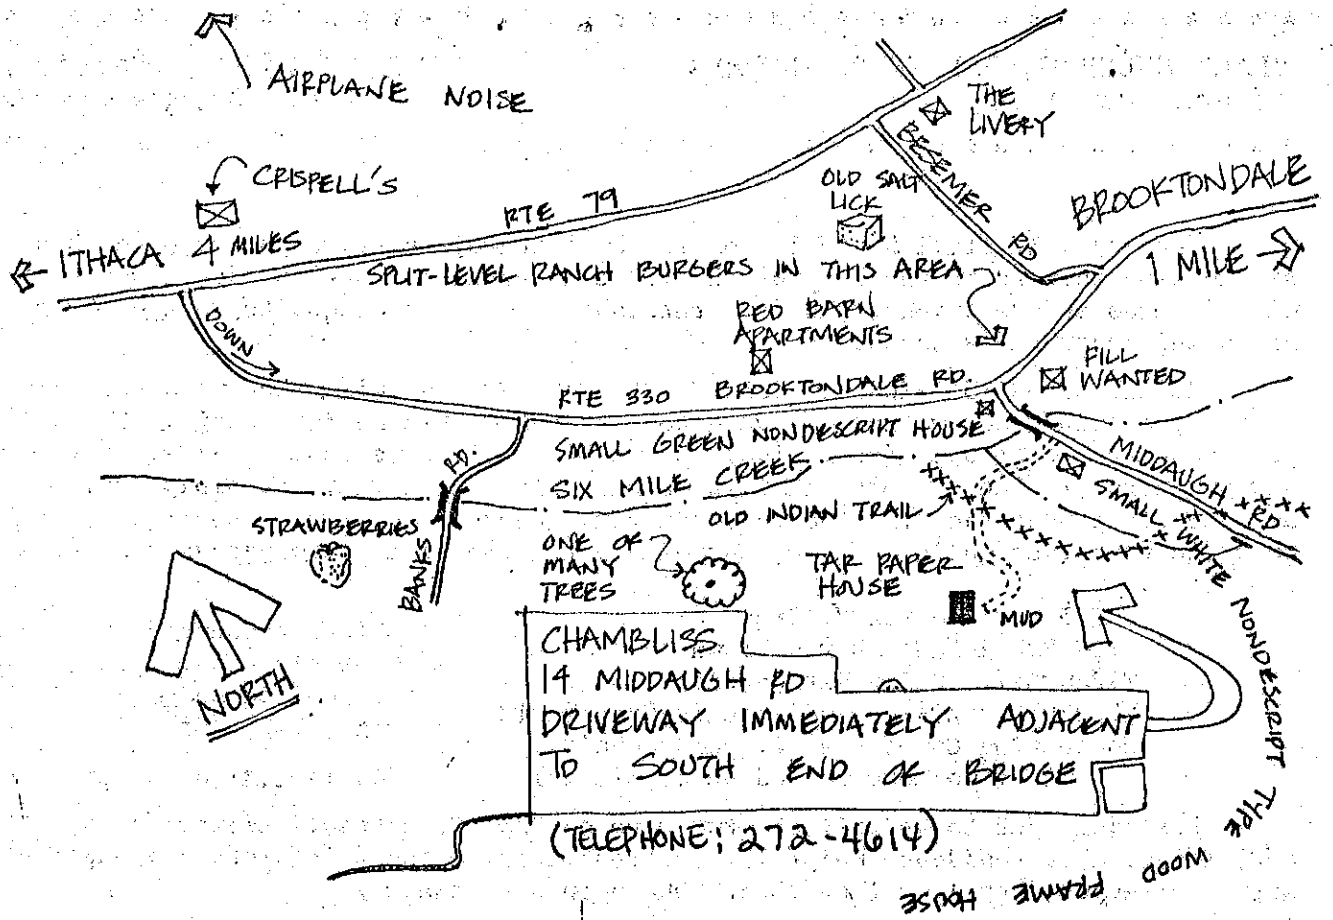 AIRPLANE NOISE
THE
LIVERY
CRISPELL'S
BESEMER RD
OLD SALT
LICK
BROOKTONDALE
1 MILE
RTE 79
ITHACA 4 MILES
SPLIT-LEVEL RANCH BURGERS IN THIS AREA
RED BARN
APARTMENTS
DOWN
FILL
WANTED
RTE 330 BROOKTONDALE RD.
SMALL GREEN NONDESCRIPT HOUSE
MIDDAUGH RD
SIX MILE CREEK
BANKS RD.
OLD INDIAN TRAIL
SMALL WHITE NONDESCRIPT TYPE WOOD FRAME HOUSE
STRAWBERRIES
ONE OF
MANY
TREES
TAR PAPER
HOUSE
MUD
NORTH
CHAMBLISS
14 MIDDAUGH RD
DRIVEWAY IMMEDIATELY ADJACENT
TO SOUTH END OF BRIDGE
(TELEPHONE: 272-4614)